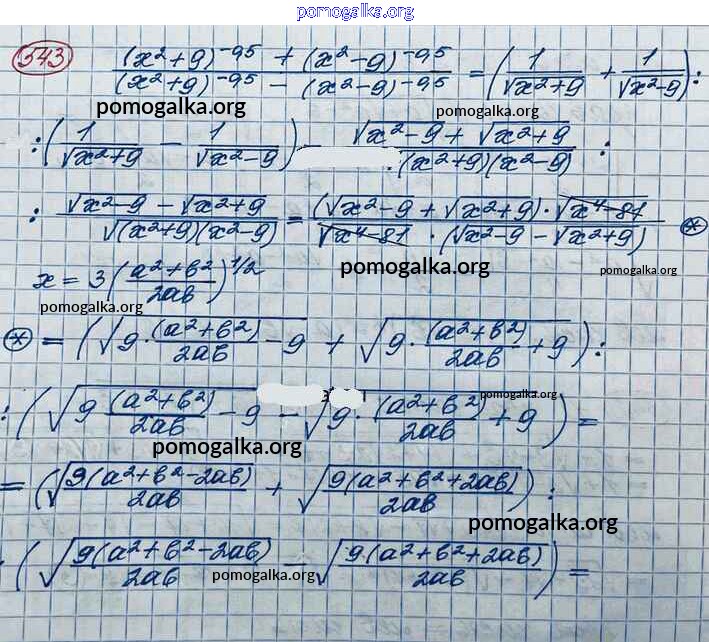 pomogalka.org
543 ((x²+9)^-0,5 + (x²-9)^-0,5)/((x²+9)^-0,5 - (x²-9)^-0,5) = (1/√(x²+9) + 1/√(x²-9)) :
pomogalka.org pomogalka.org
: (1/√(x²+9) - 1/√(x²-9)) = (√(x²-9) + √(x²+9))/((x²+9)(x²-9)) :
: (√(x²-9) - √(x²+9))/√((x²+9)(x²-9)) = ((√(x²-9) + √(x²+9)) · √(x⁴-81))/(√(x⁴-81) · (√(x²-9) - √(x²+9))) *
pomogalka.org pomogalka.org
x = 3((a²+b²)/2ab)^1/2
pomogalka.org
* = (√(9·(a²+b²)/2ab - 9) + √(9·(a²+b²)/2ab + 9)) :
pomogalka.org
: (√(9(a²+b²)/2ab - 9) - √(9·(a²+b²)/2ab + 9)) =
pomogalka.org
= (√(9(a²+b²-2ab)/2ab) + √(9(a²+b²+2ab)/2ab)) :
pomogalka.org
: (√(9(a²+b²-2ab)/2ab) - √(9(a²+b²+2ab)/2ab)) =
pomogalka.org